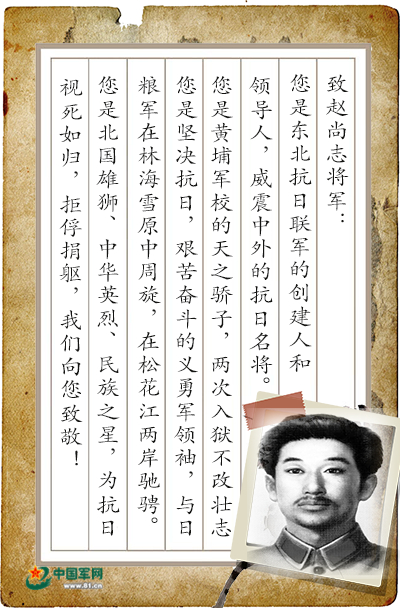 致赵尚志将军：
您是东北抗日联军的创建人和
领导人，威震中外的抗日名将。
您是黄埔军校的天之骄子，两次入狱不改壮志
您是坚决抗日，艰苦奋斗的义勇军领袖，与日
粮军在林海雪原中周旋，在松花江两岸驰骋。
您是北国雄狮、中华英烈、民族之星，为抗日
视死如归，拒俘捐躯，我们向您致敬！
中国军网
www.81.cn